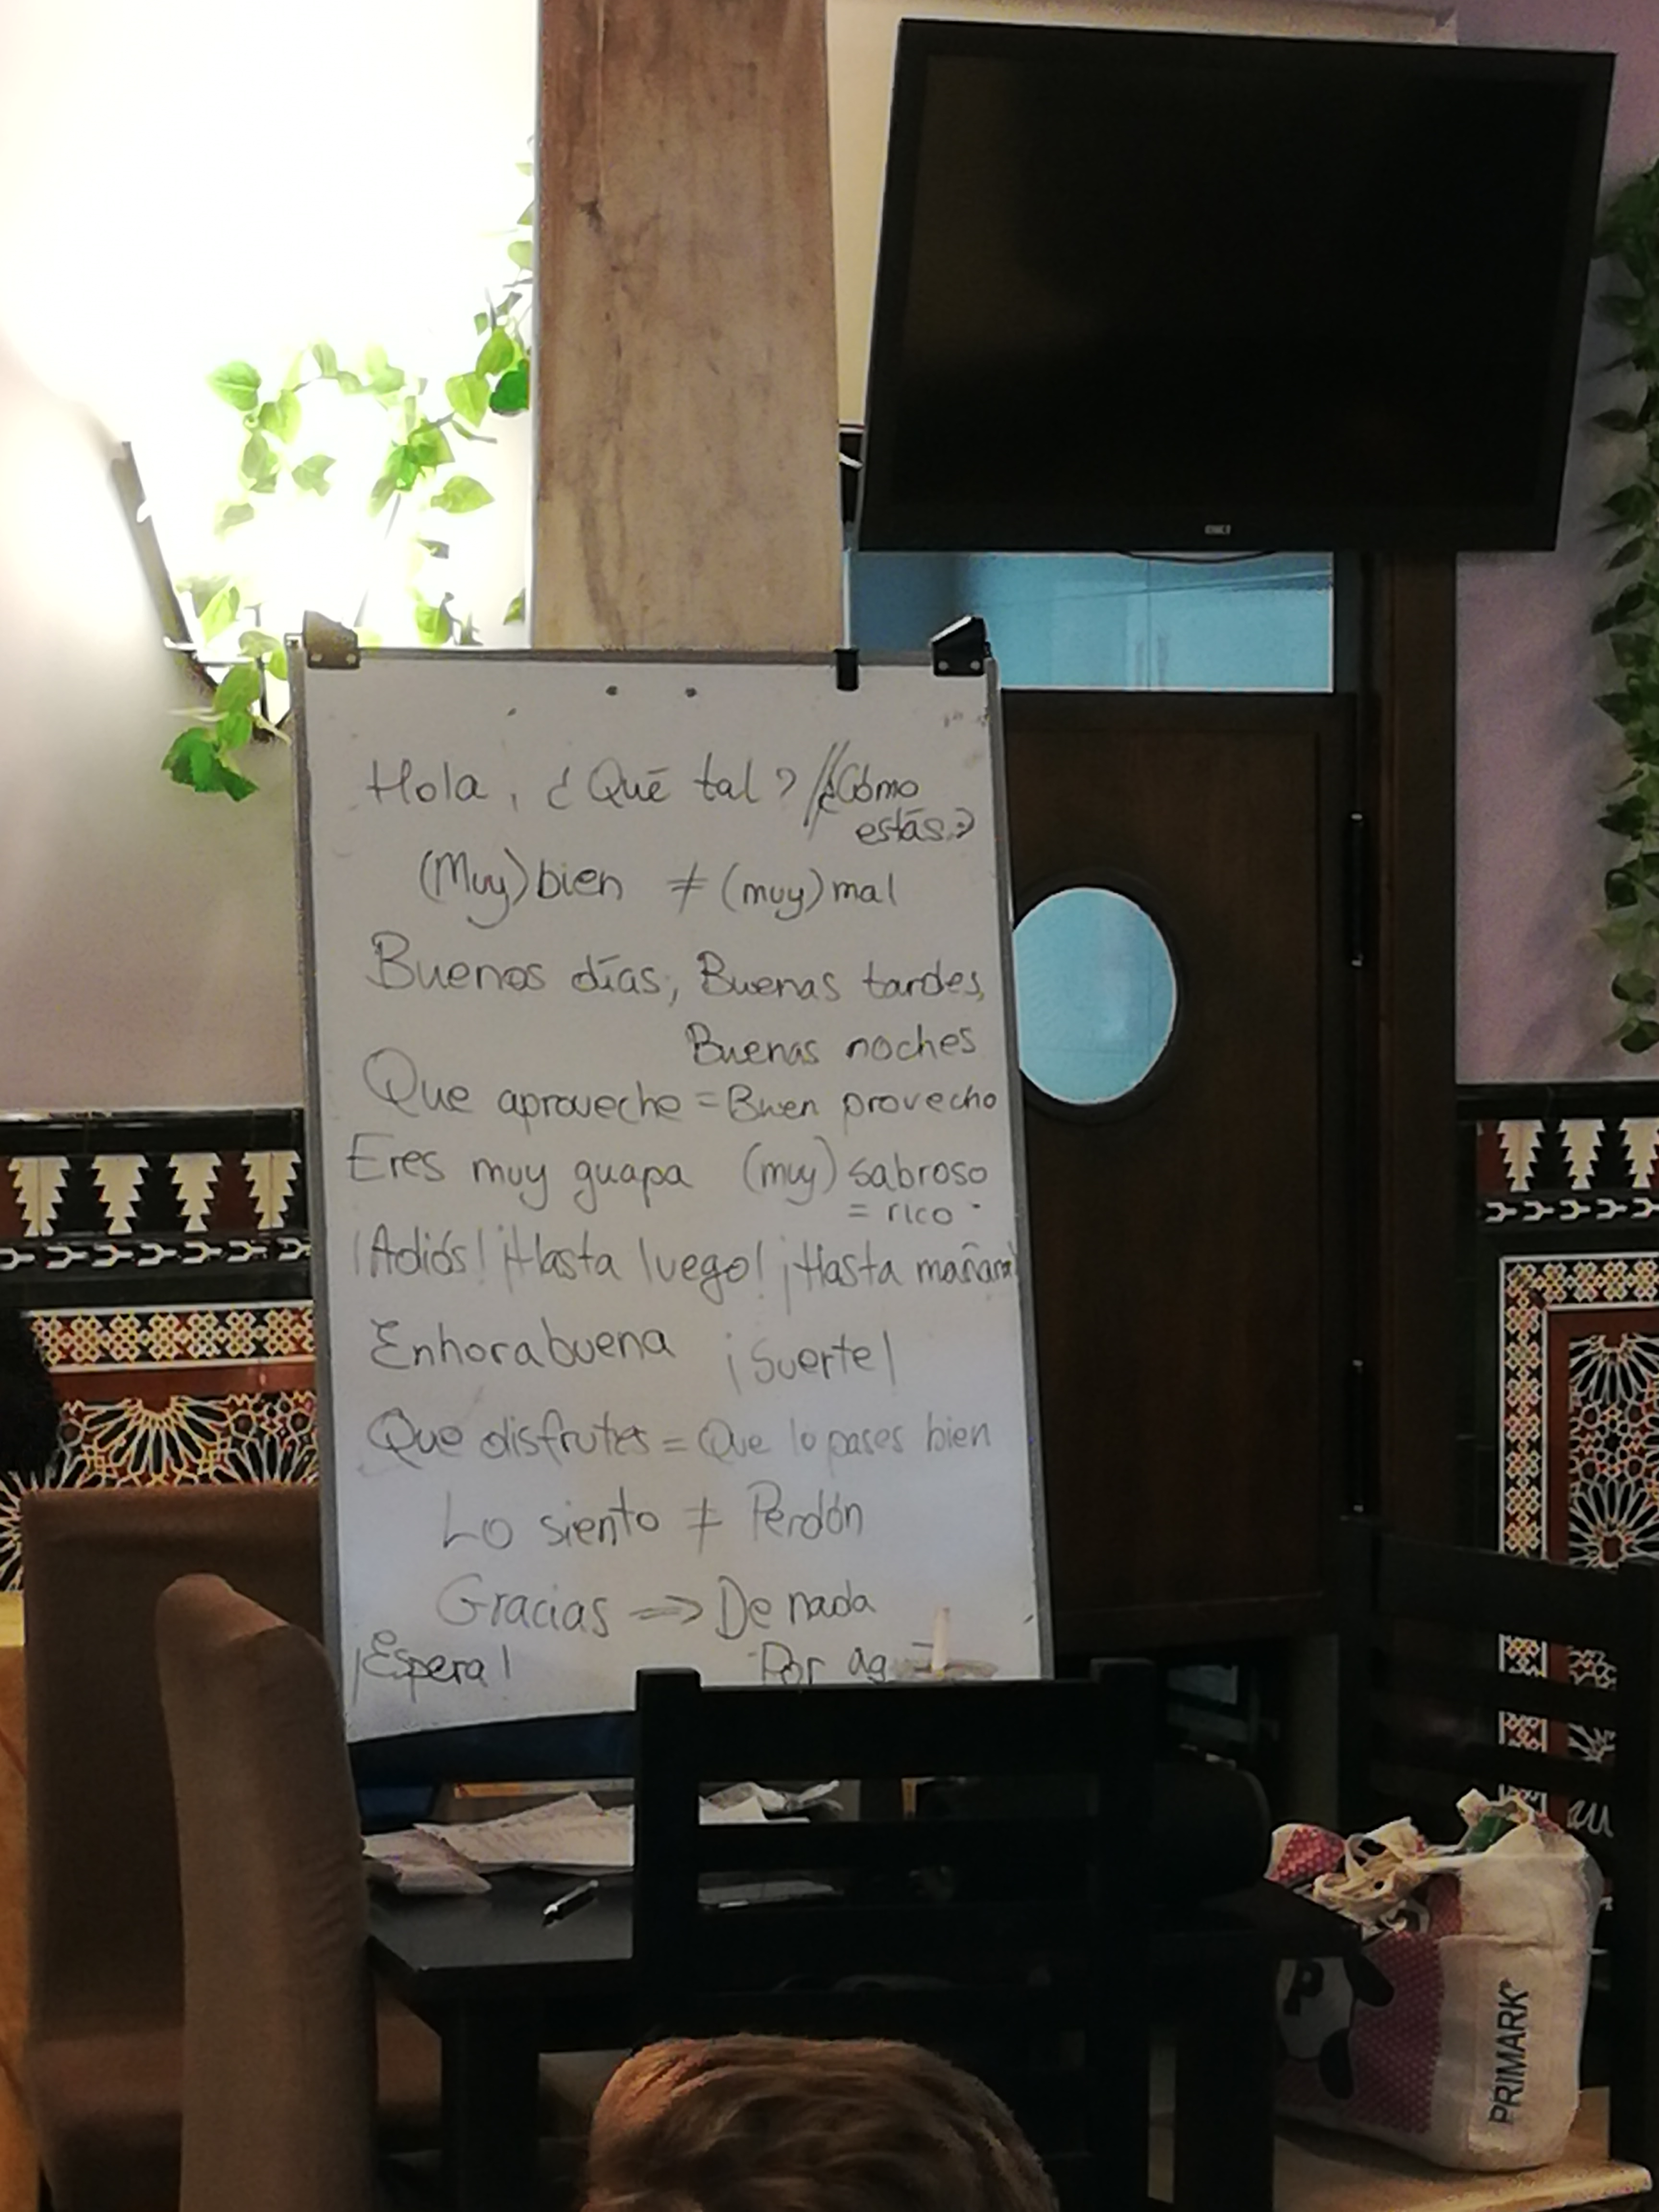 Hola, ¿Qué tal? // ¿Cómo
estás?
(Muy) bien ≠ (muy) mal
Buenos días, Buenas tardes,
Buenas noches
Que aproveche = Buen provecho
Eres muy guapa (muy) sabroso
= rico
¡Adiós! ¡Hasta luego! ¡Hasta mañana!
Enhorabuena ¡Suerte!
Que disfrutes = Que lo pases bien
Lo siento ≠ Perdón
Gracias => De nada
¡Espera! Por
PRIMARK